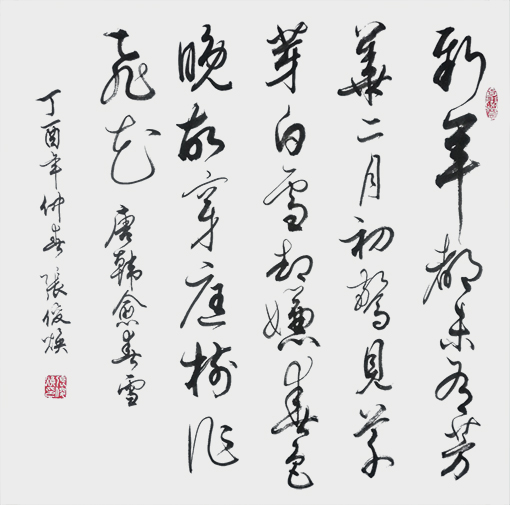 新年都未有芳
華二月初驚見草
芽白雪却嫌春色
晚故穿庭樹作
飛花
唐韓愈春雪
丁酉年仲春張俊煥